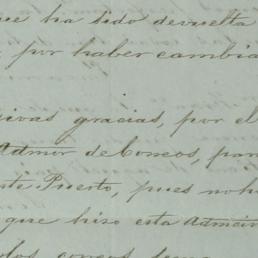 ue ha sido devuelta
por haber cambia
ivas gracias, por el
Admor de Correos, par
te Puerto, pues no hu
que hizo esta Admin